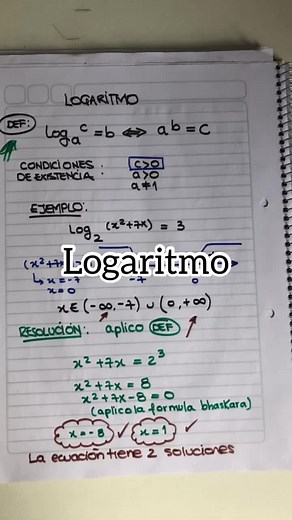 LOGARITMO
DEF:
log_a^c = b ⇔ a^b = c
CONDICIONES : c>0
DE EXISTENCIA: a>0
a≠1
EJEMPLO:
Log_2 (x²+7x) = 3
Logaritmo
-7 0
x=-7
x=0
x∈(-∞,-7) ∪ (0,+∞)
RESOLUCIÓN: aplico DEF
x²+7x = 2³
x²+7x = 8
x²+7x-8=0
(aplico la formula bhaskara)
x=-8 ✓ x=1 ✓
La ecuación tiene 2 soluciones